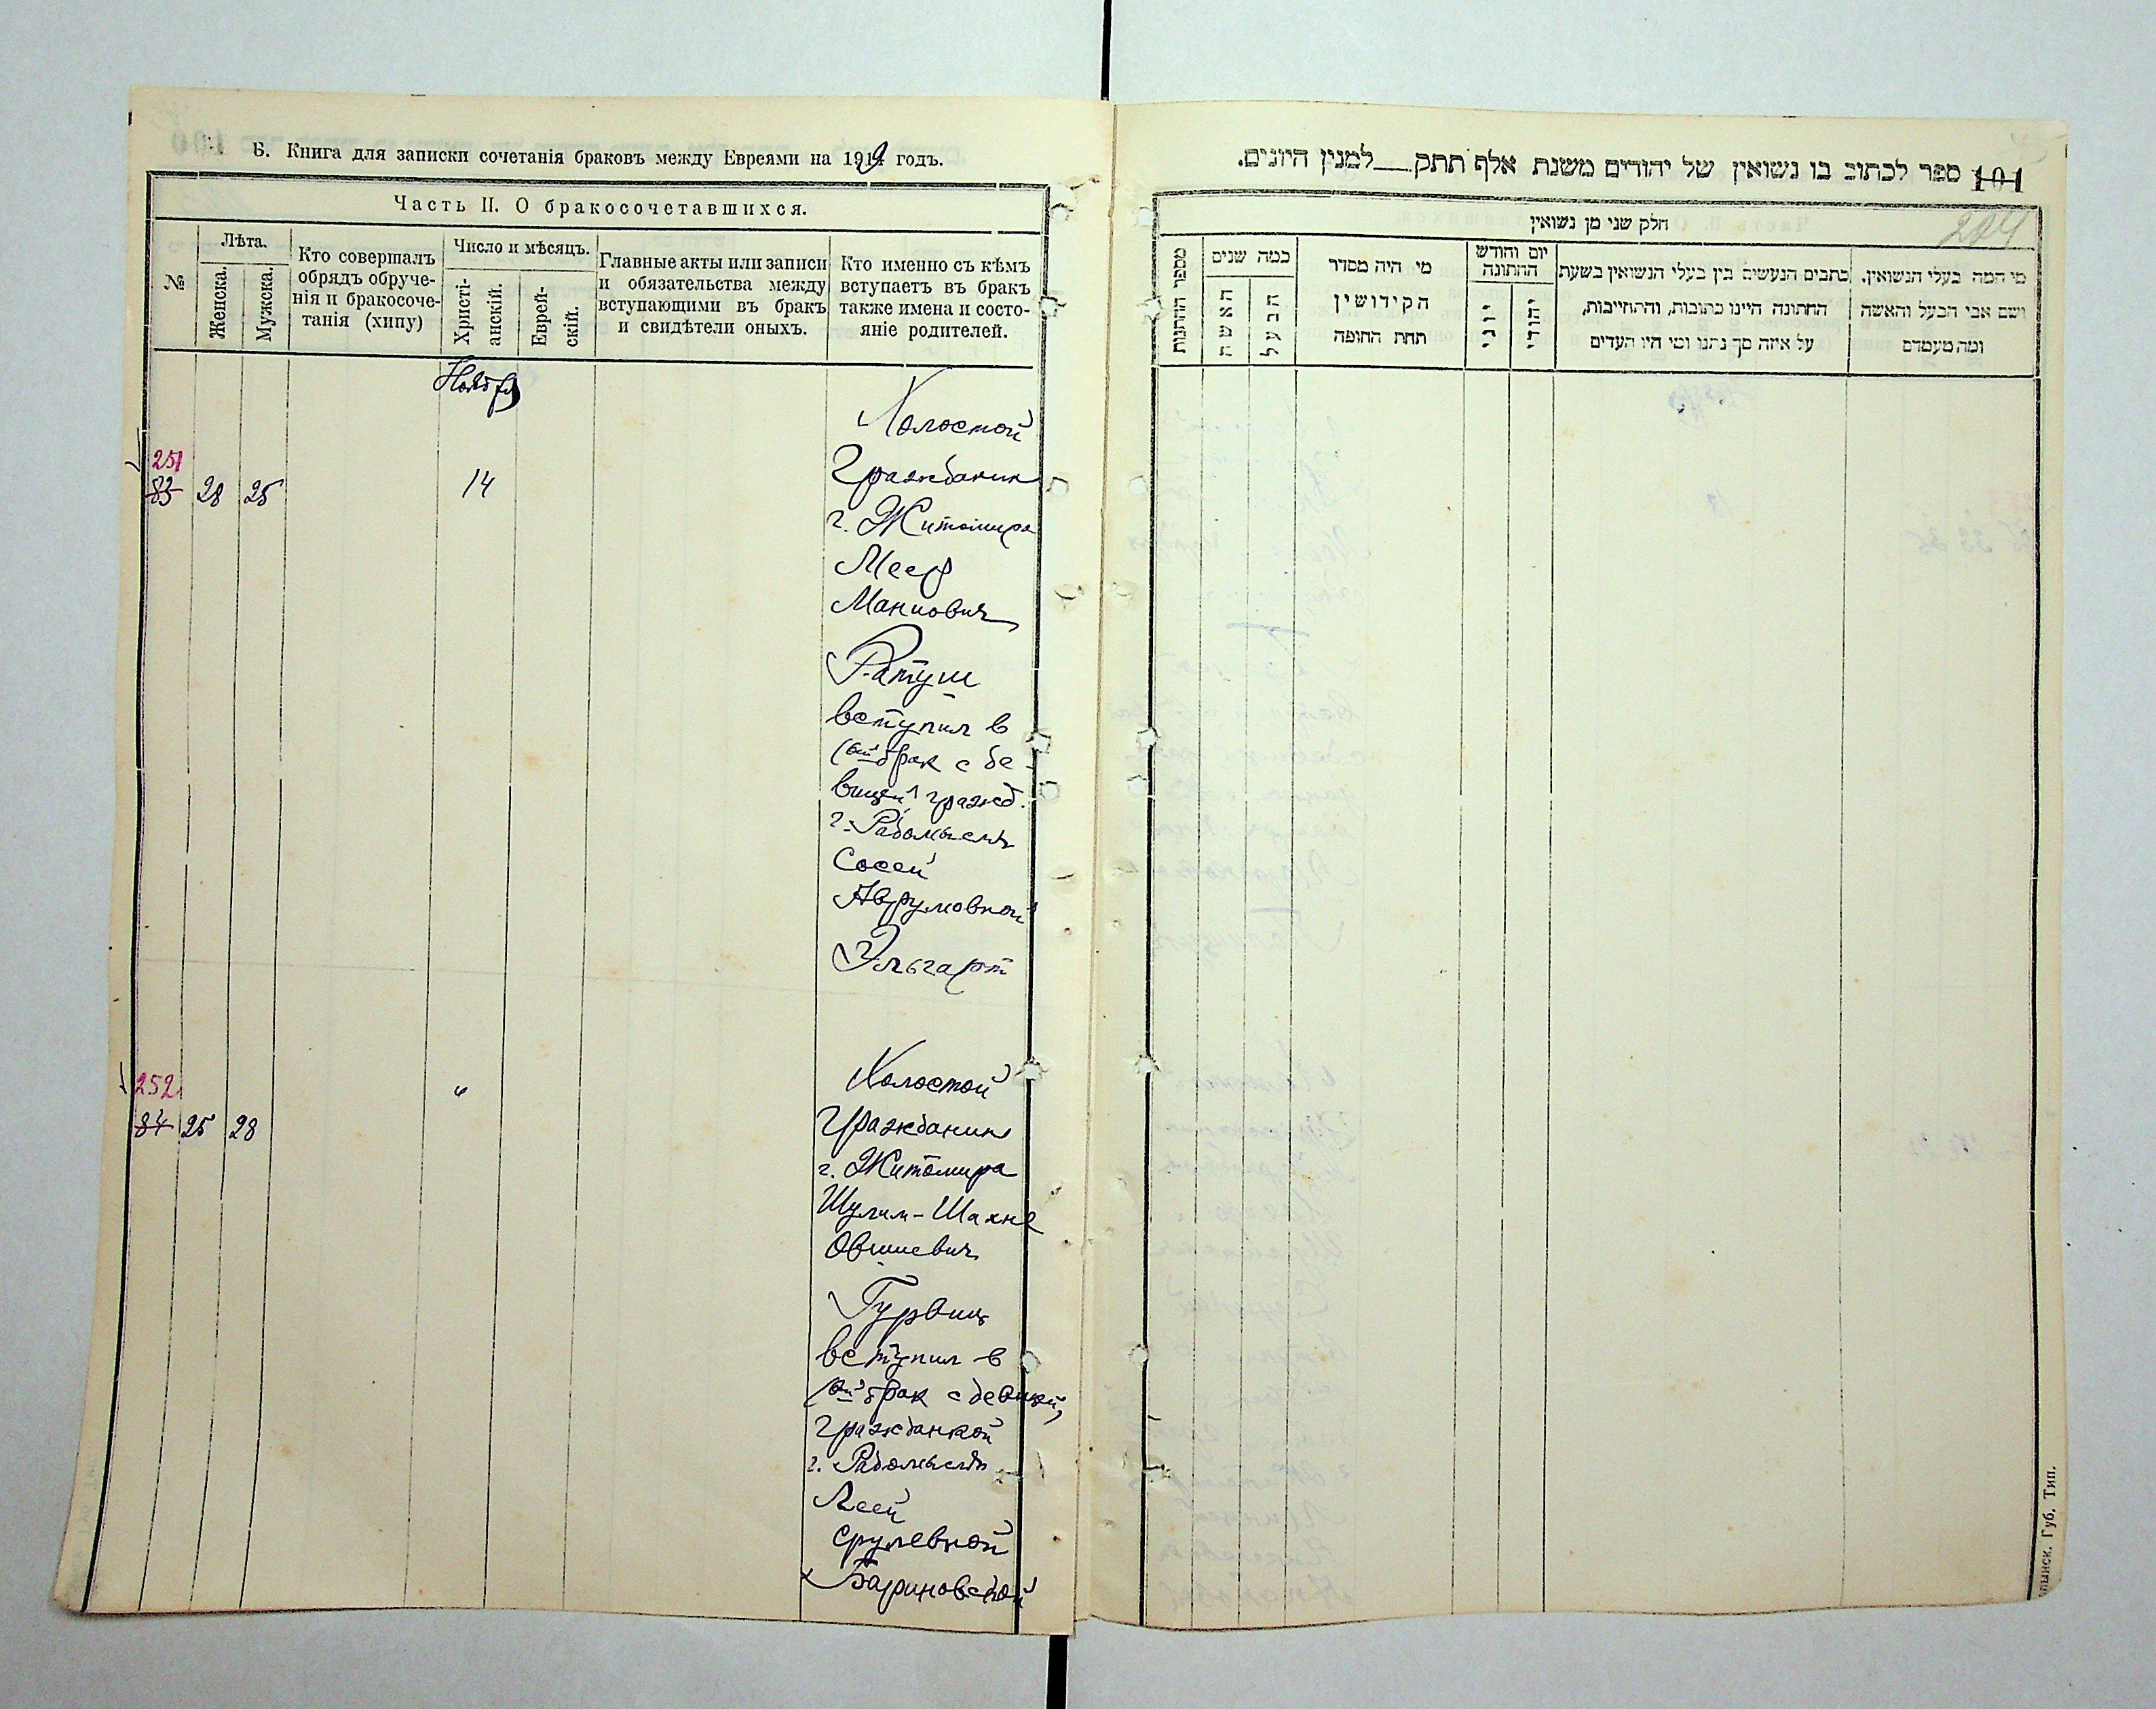 Б. Книга для записки сочетанія браковъ между Евреями на 1919 годъ.
Часть II. О бракосочетавшихся.
№
Лѣта.
Женска.
Мужска.
Кто совершалъ
обрядъ обруче-
нія и бракосоче-
танія (хипу)
Число и мѣсяцъ.
Христі-
анскій.
Еврей-
скій.
Главные акты или записи
и обязательства между
вступающими въ бракъ
и свидѣтели оныхъ.
Кто именно съ кѣмъ
вступаетъ въ бракъ
также имена и состо-
яніе родителей.
Ноябрь
251
83 28 25 14
Холостой
Гражданин
г. Житомира
Меер
Маниович
Ратуш
вступил в
1ый брак с де-
вицей гражд.
г. Радомысль
Сосей
Аврумовной
Эльгарт
252 "
84 25 28
Холостой
Гражданин
г. Житомира
Шулим-Шахне
Овшиевич
Гурвиц
вступил в
1ый брак с девицей,
гражданкой
г. Радомысль
Леей
Срулевной
Бариновской
101 ספר לכתוב בו נשואין של יהודים משנת אלף תתק למנין היונים.
204
חלק שני מן נשואין
מספר החתנות
כמה שנים
האשה
הבעל
מי היה מסדר
הקידושין
תחת החופה
יום וחודש
החתונה
יוני
יהודי
כתבים הנעשים בין בעלי הנשואין בשעת
החתונה היינו כתובות, והתחייבות,
על איזה סך נתנו ומי היו העדים
מי המה בעלי הנשואין.
ושם אבי הבעל והאשה
ומה מעמדם
Губ. Тип.